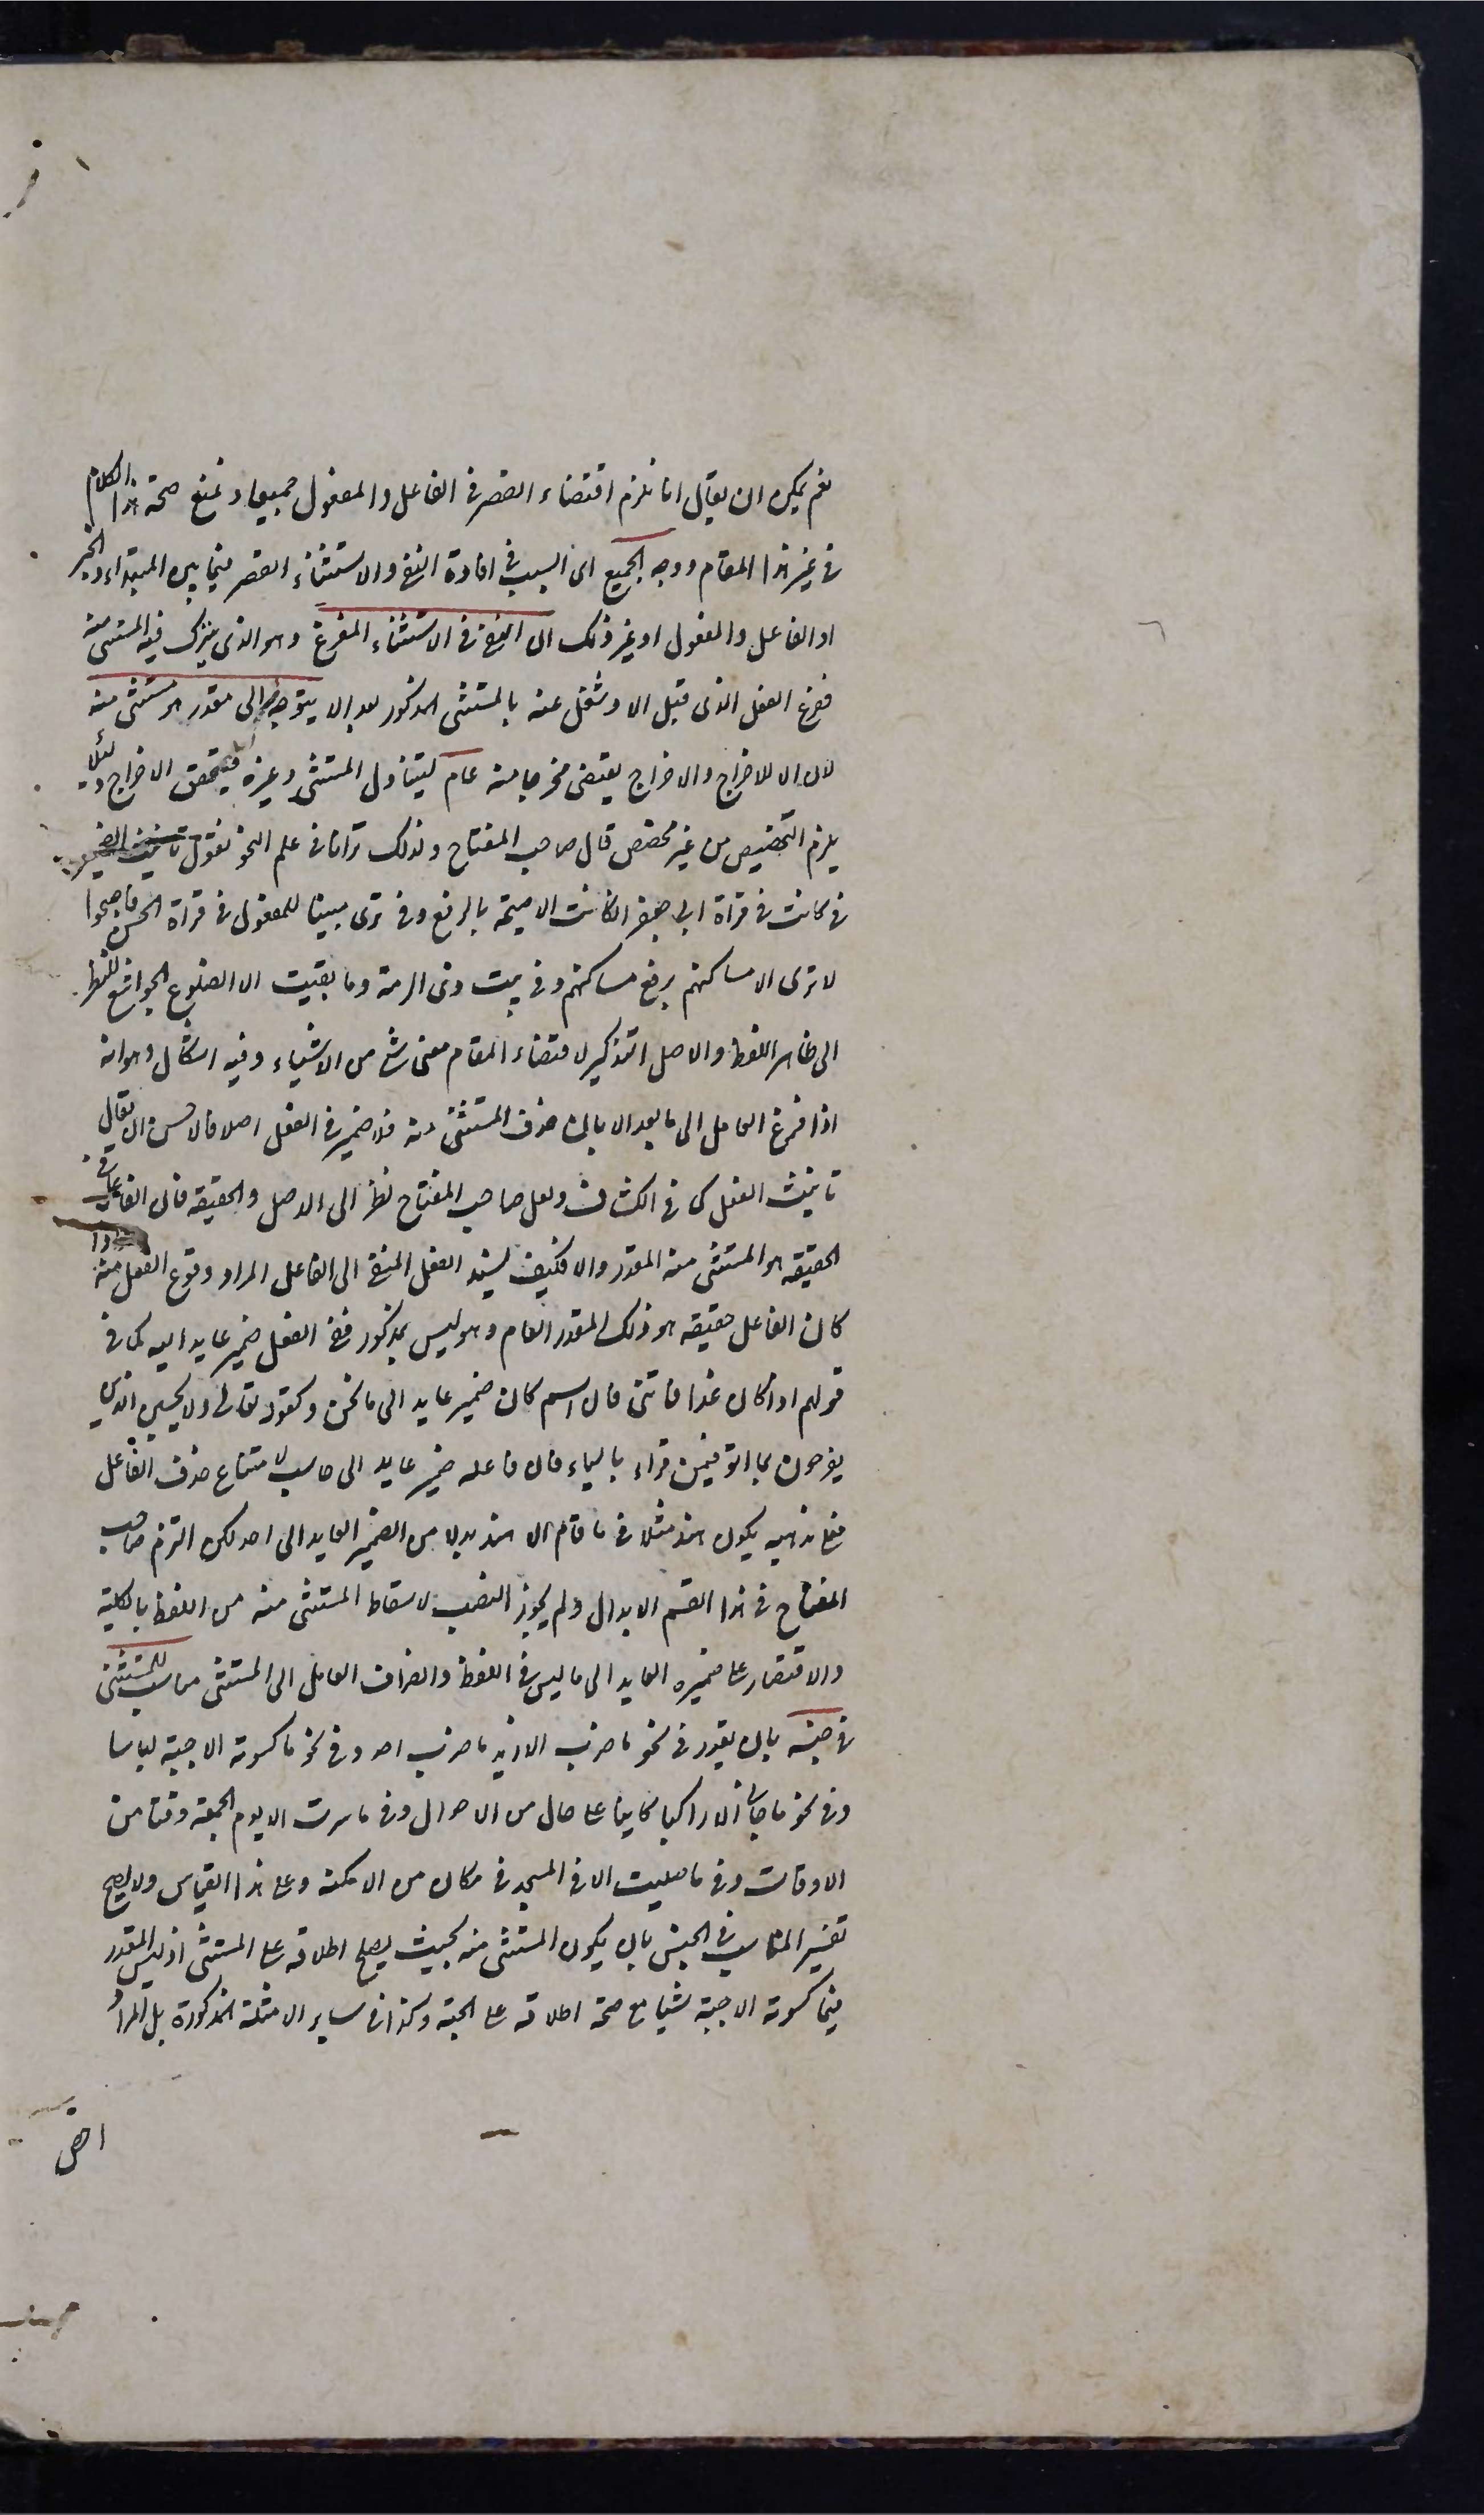 نعم يمكن ان يقال انا نلزم اقتضاء القصر في الفاعل والمفعول جميعا ونمنع صحة هذا الكلام
في غير هذا المقام ووجه الجميع اى السبب في افادة النفي والاستثناء القصر فيما بين المبتداء والخبر
او الفاعل والمفعول او غير ذلك ان النفي في الاستثناء المفرغ وهو الذى يترك فيه المستثنى منه
ففرغ الفعل الذى قبل الا وشغل عنه بالمستثنى المذكور بعد الا يتوجه الى مقدر هو مستثنى منه
لان الا للاخراج والاخراج يقتضى مخرجا منه عام ليتناول المستثنى وغيره فيتحقق الاخراج ولئلا
يلزم التخصيص من غير مخصص قال صاحب المفتاح ولذلك ترانا في علم النحو نقول تانيث الضمير
في كانت في قراة ابى جعفر ان كانت الا صيحة بالرفع وفي ترى مبنيا للمفعول في قراة الحسن فاصبحوا
لا ترى الا مساكنهم برفع مساكنهم وفي بيت ذى الرمة وما بقيت الا الضلوع الجراشع للنظر
الى ظاهر اللفظ والاصل التذكير لاقتضاء المقام معنى شئ من الاشياء وفيه اشكال وهو انه
اذا فرغ العامل الى ما بعد الا بان حذف المستثنى منه فلا ضمير في الفعل اصلا فالاحسن ان يقال
تانيث الفعل كما في الكشاف ولعل صاحب المفتاح نظر الى الاصل والحقيقة فان الفاعل في
الحقيقة هو المستثنى منه المقدر والا فكيف يسند الفعل المنفي الى الفاعل المراد وقوع الفعل منه واذا
كان الفاعل حقيقة هو ذلك المقدر العام وهو ليس بمذكور ففي الفعل ضمير عايد اليه كما في
قولهم اذا كان غدا فاتنى فان اسم كان ضمير عايد الى ما نحن وكقوله تعالى ولا يحسبن الذين
يفرحون بما اتوا فيمن قراء بالياء فان فاعله ضمير عايد الى حاسب لامتناع حذف الفاعل
فعلى مذهبه يكون هند مثلا في ما قام الا هند بدلا من الضمير العايد الى احد لكن التزم صاحب
المفتاح في هذا القسم الابدال ولم يجوز النصب لاسقاط المستثنى منه من اللفظ بالكلية
والاقتصار على ضميره العايد الى ما ليس في اللفظ وانصراف العامل الى المستثنى مناسب للمستثنى
في جنسه بان يقدر في نحو ما ضرب الا زيد ما ضرب احد وفي نحو ما كسوته الا جبة لباسا
وفي نحو ما جاءنى الا راكبا كاينا على حال من الاحوال وفي ما سرت الا يوم الجمعة وقتا من
الاوقات وفي ما صليت الا في المسجد في مكان من الامكنة وعلى هذا القياس ولا يصح
تفسير المناسب في الجنس بان يكون المستثنى منه بحيث يصح اطلاقه على المستثنى اذ ليس المقدر
فيما كسوته الا جبة شيا مع صحة اطلاقه على الجبة وكذا في ساير الامثلة المذكورة بل المراد
اخص